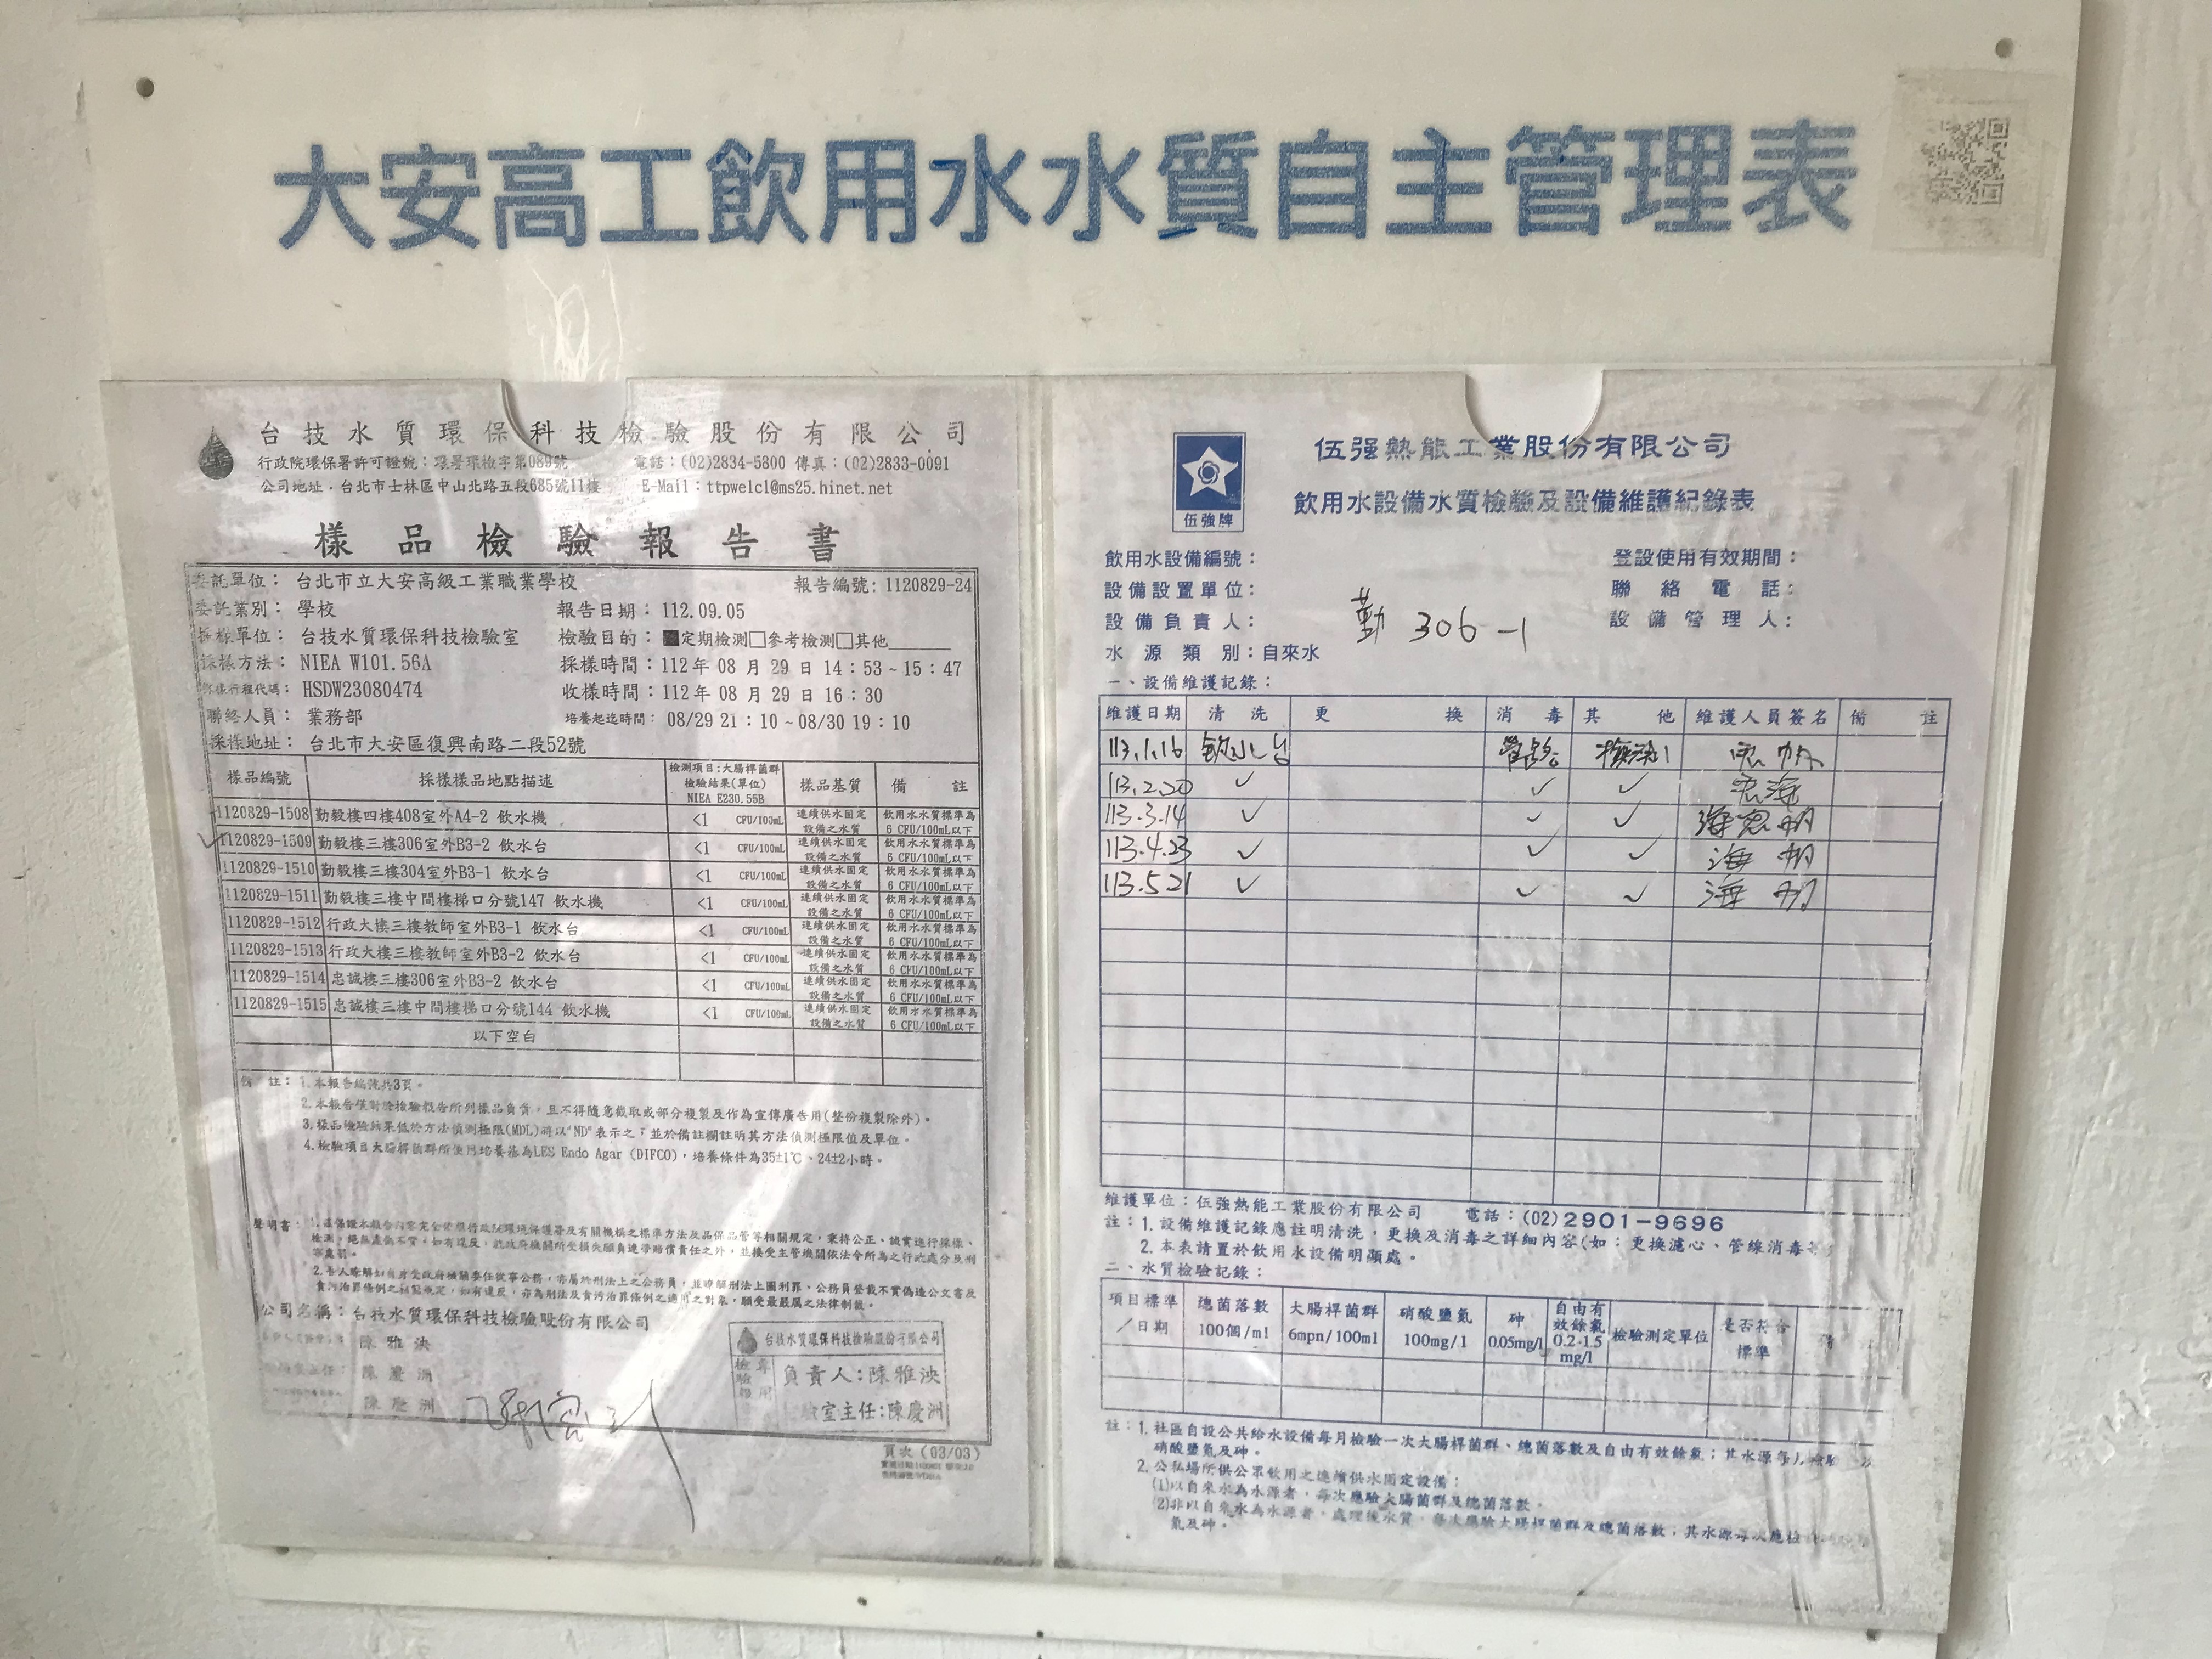 大安高工飲用水水質自主管理表
台技水質環保科技檢驗股份有限公司
行政院環保署許可證號：環署環檢字第089號 電話：(02)2834-5800 傳真：(02)2833-0091
公司地址．台北市士林區中山北路五段685號11樓 E-Mail：ttpwelcl@ms25.hinet.net
樣品檢驗報告書
委託單位：台北市立大安高級工業職業學校 報告編號：1120829-24
委託業別：學校 報告日期：112.09.05
採樣單位：台技水質環保科技檢驗室 檢驗目的：■定期檢測□參考檢測□其他
採樣方法：NIEA W101.56A 採樣時間：112年08月29日14：53~15：47
採樣行程代碼：HSDW23080474 收樣時間：112年08月29日16：30
聯絡人員：業務部 培養起迄時間：08/29 21：10~08/30 19：10
採樣地址：台北市大安區復興南路二段52號
樣品編號 採樣樣品地點描述 檢測項目:大腸桿菌群 檢驗結果(單位) NIEA E230.55B 樣品基質 備註
1120829-1508 勤毅樓四樓408室外A4-2 飲水機 <1 CFU/100mL 連續供水固定設備之水質 飲用水水質標準為6 CFU/100mL以下
1120829-1509 勤毅樓三樓306室外B3-2 飲水台 <1 CFU/100mL 連續供水固定設備之水質 飲用水水質標準為6 CFU/100mL以下
1120829-1510 勤毅樓三樓304室外B3-1 飲水台 <1 CFU/100mL 連續供水固定設備之水質 飲用水水質標準為6 CFU/100mL以下
1120829-1511 勤毅樓三樓中間樓梯口分號147 飲水機 <1 CFU/100mL 連續供水固定設備之水質 飲用水水質標準為6 CFU/100mL以下
1120829-1512 行政大樓三樓教師室外B3-1 飲水台 <1 CFU/100mL 連續供水固定設備之水質 飲用水水質標準為6 CFU/100mL以下
1120829-1513 行政大樓三樓教師室外B3-2 飲水台 <1 CFU/100mL 連續供水固定設備之水質 飲用水水質標準為6 CFU/100mL以下
1120829-1514 忠誠樓三樓306室外B3-2 飲水台 <1 CFU/100mL 連續供水固定設備之水質 飲用水水質標準為6 CFU/100mL以下
1120829-1515 忠誠樓三樓中間樓梯口分號144 飲水機 <1 CFU/100mL 連續供水固定設備之水質 飲用水水質標準為6 CFU/100mL以下
以下空白
備註：1.本報告編號共3頁。
2.本報告僅對於檢驗報告所列樣品負責，且不得隨意截取或部分複製及作為宣傳廣告用(整份複製除外)。
3.樣品檢驗結果低於方法偵測極限(MDL)時以"ND"表示之，並於備註欄註明其方法偵測極限值及單位。
4.檢驗項目大腸桿菌群所使用培養基為LES Endo Agar (DIFCO)，培養條件為35±1℃、24±2小時。
聲明書：1.茲保證本報告內容完全依照行政院環境保護署及有關機構之標準方法及品保品管等相關規定，秉持公正、誠實進行採樣、
檢測，絕無虛偽不實，如有違反，就政府機關所受損失願負連帶賠償責任之外，並接受主管機關依法令所為之行政處分及刑
事處罰。
2.吾人瞭解如自身受政府機關委任從事公務，亦屬於刑法上之公務員，並瞭解刑法上圖利罪、公務員登載不實偽造公文書及
貪污治罪條例之相關規定，如有違反，亦為刑法及貪污治罪條例之適用之對象，願受最嚴厲之法律制裁。
公司名稱：台技水質環保科技檢驗股份有限公司
陳雅泱
陳慶洲
陳慶洲
台技水質環保科技檢驗股份有限公司
檢驗專用
負責人:陳雅泱
驗室主任:陳慶洲
頁次(03/03)
伍强熱能工業股份有限公司
伍強牌
飲用水設備水質檢驗及設備維護紀錄表
飲用水設備編號： 登設使用有效期間：
設備設置單位： 聯絡電話：
設備負責人： 勤 306-1 設備管理人：
水源類別：自來水
一、設備維護記錄：
維護日期 清洗 更換 消毒 其他 維護人員簽名 備註
113.1.16
113.2.20 ✓ ✓ ✓
113.3.14 ✓ ✓ ✓
113.4.23 ✓ ✓ ✓
113.5.21 ✓ ✓ ✓
維護單位：伍強熱能工業股份有限公司 電話：(02)2901-9696
註：1.設備維護記錄應註明清洗，更換及消毒之詳細內容(如：更換濾心、管線消毒等
2.本表請置於飲用水設備明顯處。
二、水質檢驗記錄：
項目標準／日期 總菌落數 100個/ml 大腸桿菌群 6mpn/100ml 硝酸鹽氮 100mg/l 砷 0.05mg/l 自由有效餘氯 0.2-1.5 mg/l 檢驗測定單位 是否符合標準 備
註：1.社區自設公共給水設備每月檢驗一次大腸桿菌群、總菌落數及自由有效餘氯；其水源每
硝酸鹽氮及砷。
2.公私場所供公眾飲用之連續供水固定設備：
(1)以自來水為水源者，每次應驗大腸菌群及總菌落數。
(2)非以自來水為水源者，處理後水質，每次應驗大腸桿菌群及總菌落數；其水源每次應檢
氮及砷。